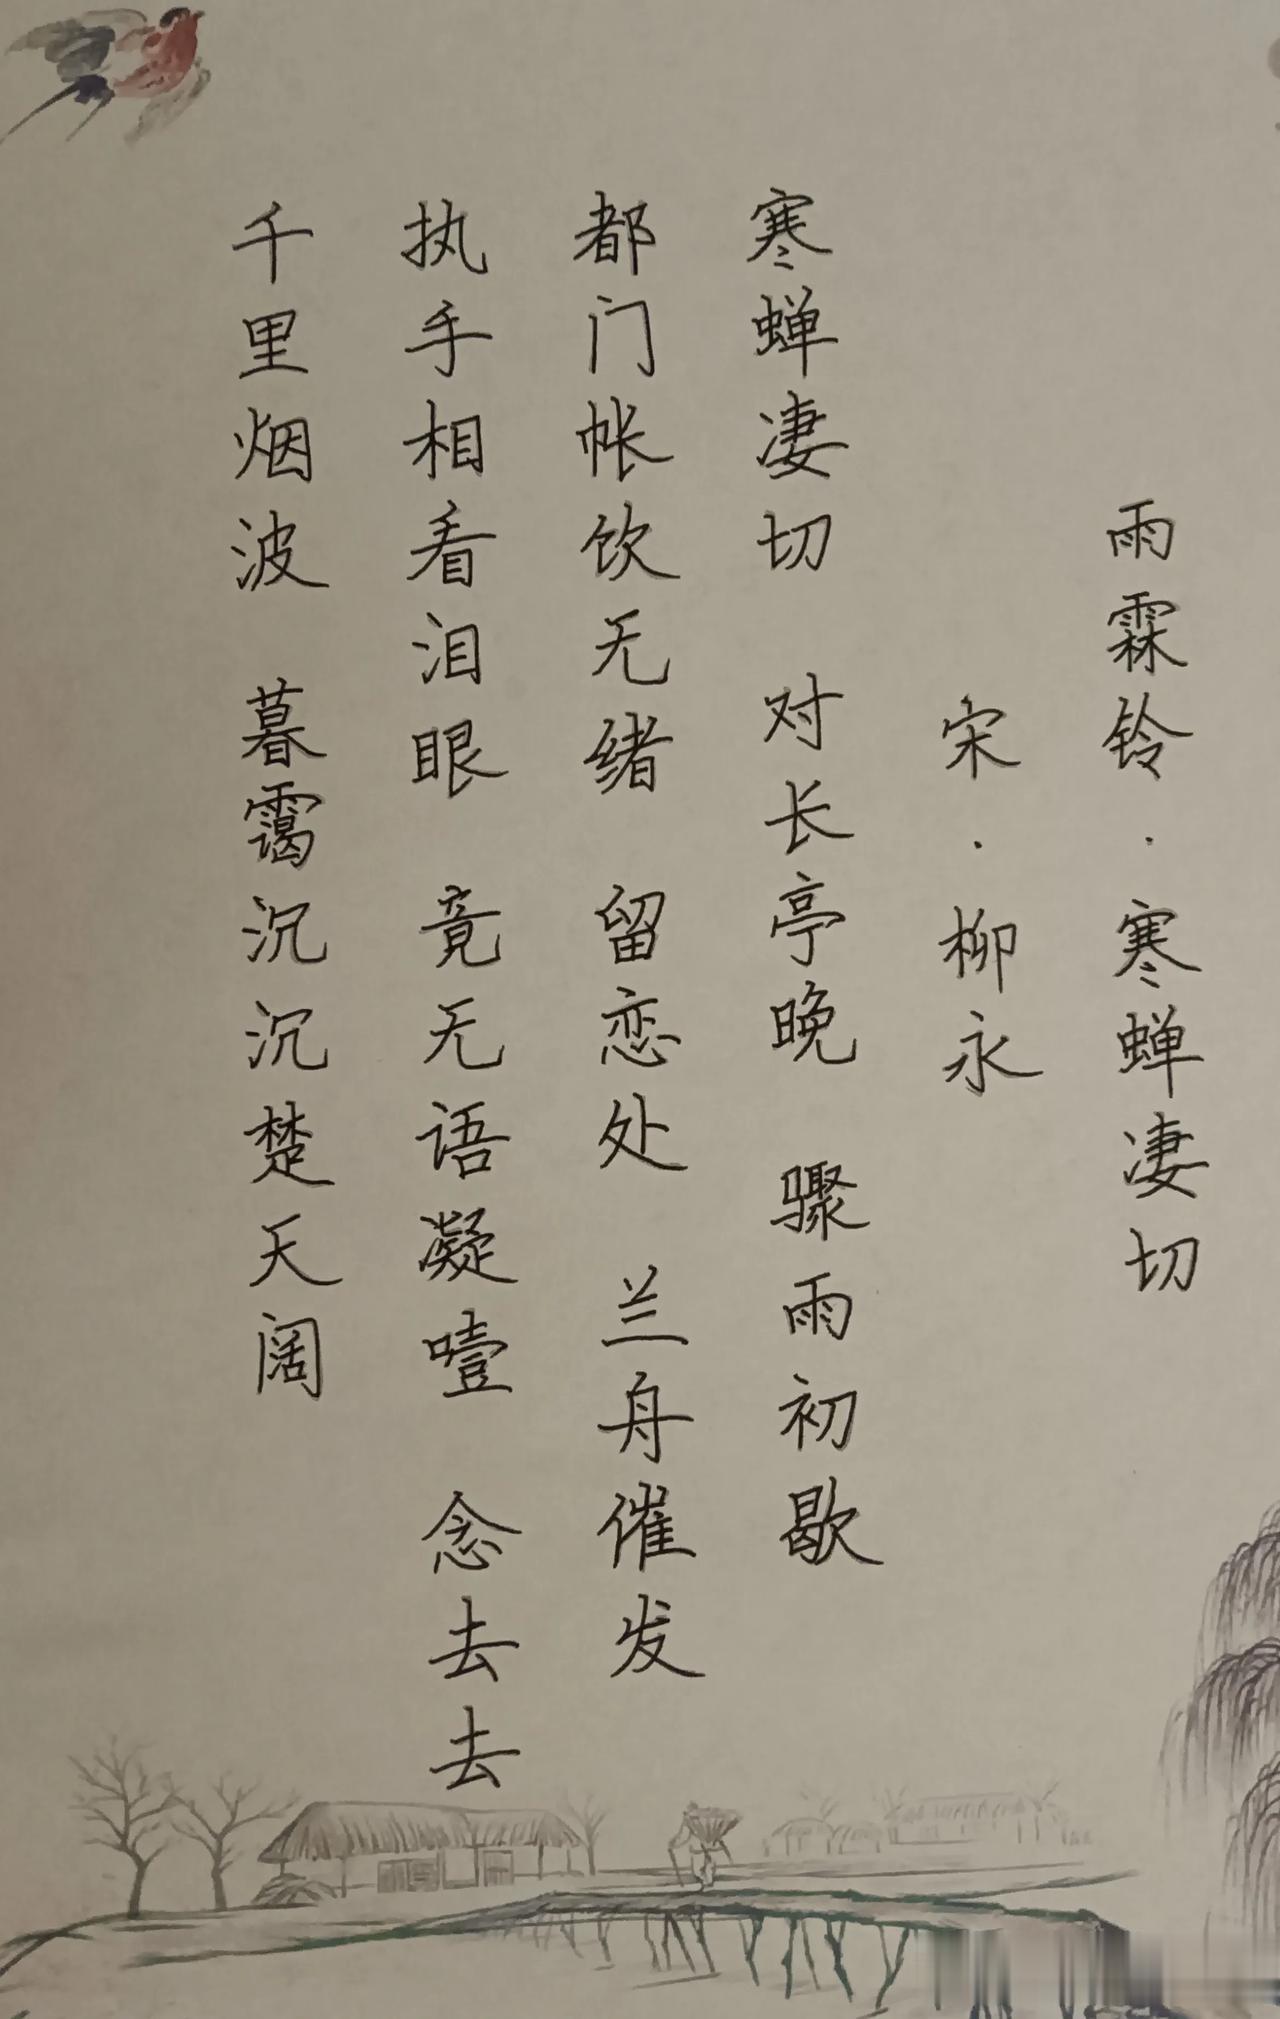 雨霖铃·寒蝉凄切
宋·柳永
寒蝉凄切 对长亭晚 骤雨初歇
都门帐饮无绪 留恋处 兰舟催发
执手相看泪眼 竟无语凝噎 念去去
千里烟波 暮霭沉沉楚天阔